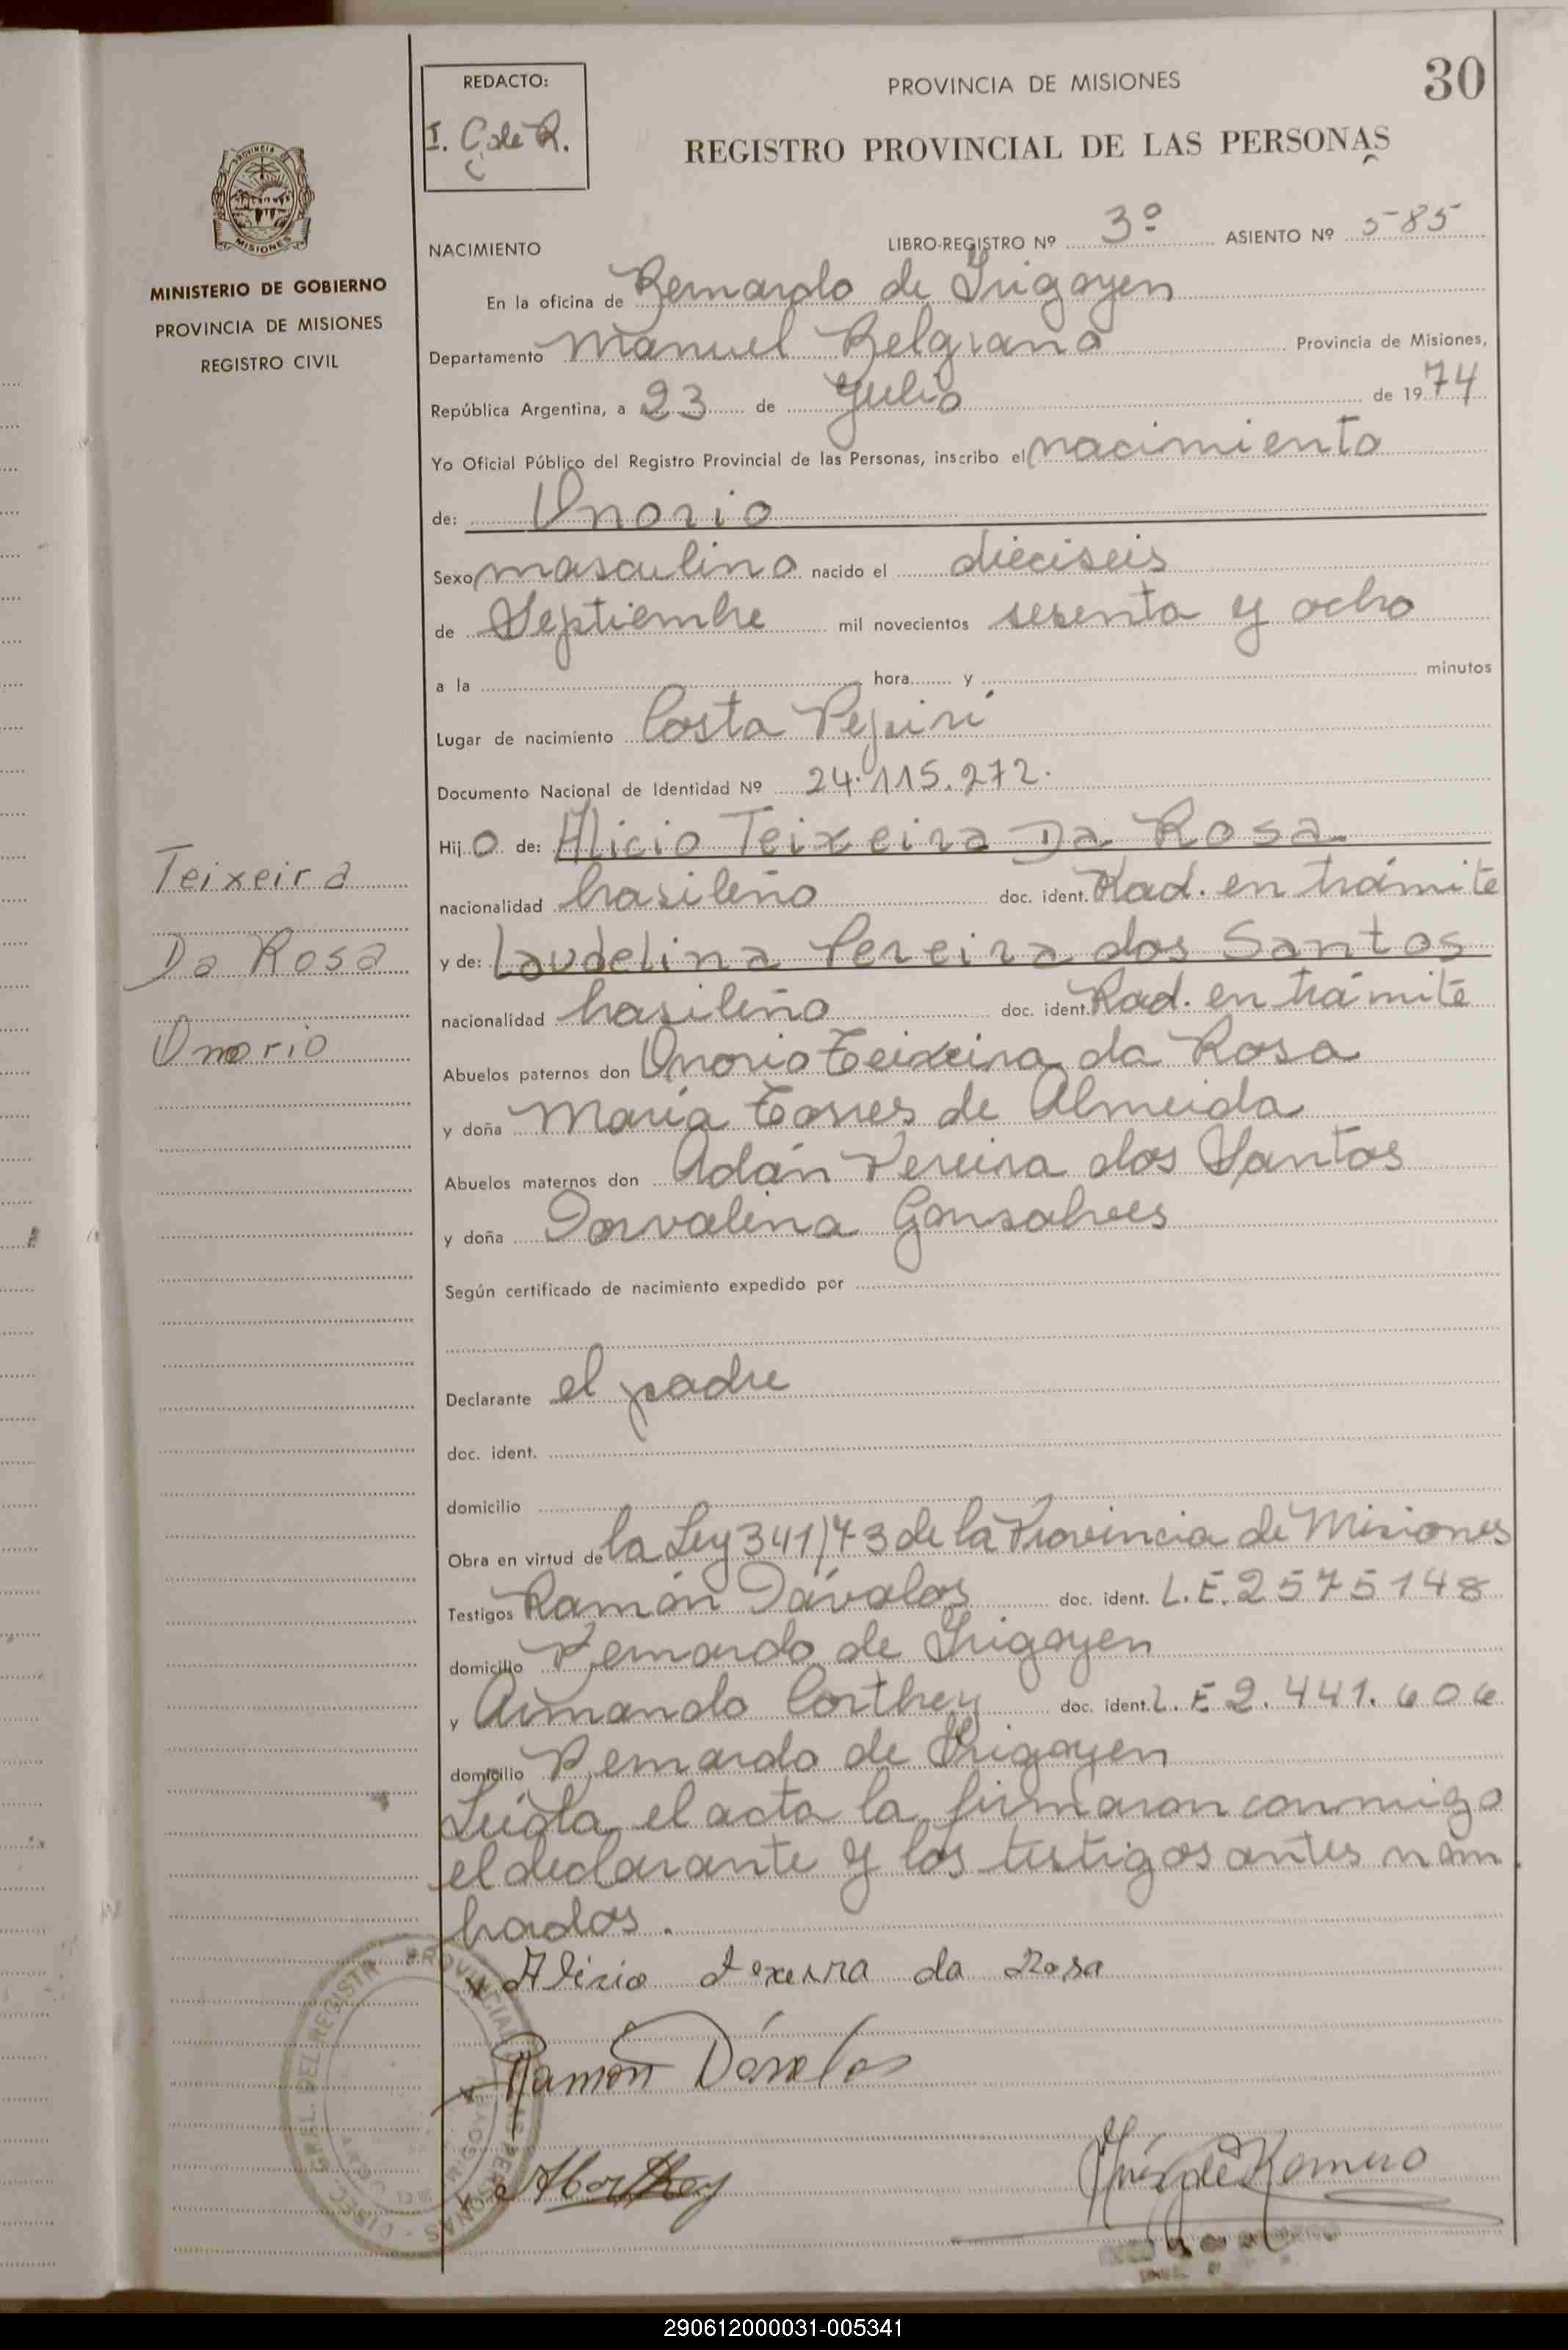 30
REDACTO:
I. C. de R.
PROVINCIA DE MISIONES
REGISTRO PROVINCIAL DE LAS PERSONAS
MISIONES
MINISTERIO DE GOBIERNO
PROVINCIA DE MISIONES
REGISTRO CIVIL
NACIMIENTO LIBRO-REGISTRO Nº 3º ASIENTO Nº 585
En la oficina de Bernardo de Irigoyen
Departamento Manuel Belgrano Provincia de Misiones,
República Argentina, a 23 de Julio de 1974
Yo Oficial Público del Registro Provincial de las Personas, inscribo el nacimiento
de: Onorio
Sexo masculino nacido el dieciseis
de Septiembre mil novecientos sesenta y ocho
a la hora y minutos
Lugar de nacimiento Costa Pepirí
Documento Nacional de Identidad Nº 24.115.272.
Hijo de: Alicio Teixeira Da Rosa
nacionalidad brasileño doc. ident. Rad. en trámite
y de: Laudelina Pereira dos Santos
nacionalidad brasileño doc. ident. Rad. en trámite
Abuelos paternos don Onorio Teixeira da Rosa
y doña María Torres de Almeida
Abuelos maternos don Adán Pereira dos Santos
y doña Dorvalina Gonsalves
Según certificado de nacimiento expedido por
Declarante el padre
doc. ident.
domicilio
Obra en virtud de la Ley 341/73 de la Provincia de Misiones
Testigos Ramón Dávalos doc. ident. L.E. 2575148
domicilio Bernardo de Irigoyen
y Armando Corthey doc. ident. L.E 2.441.606
domicilio Bernardo de Irigoyen
Leída el acta la firmaron conmigo
el declarante y los testigos antes nom
brados.
Teixeira
Da Rosa
Onorio
Alicio Texerra da Rosa
Ramón Dávalos
ACorthey
Inés de Romero
290612000031-005341